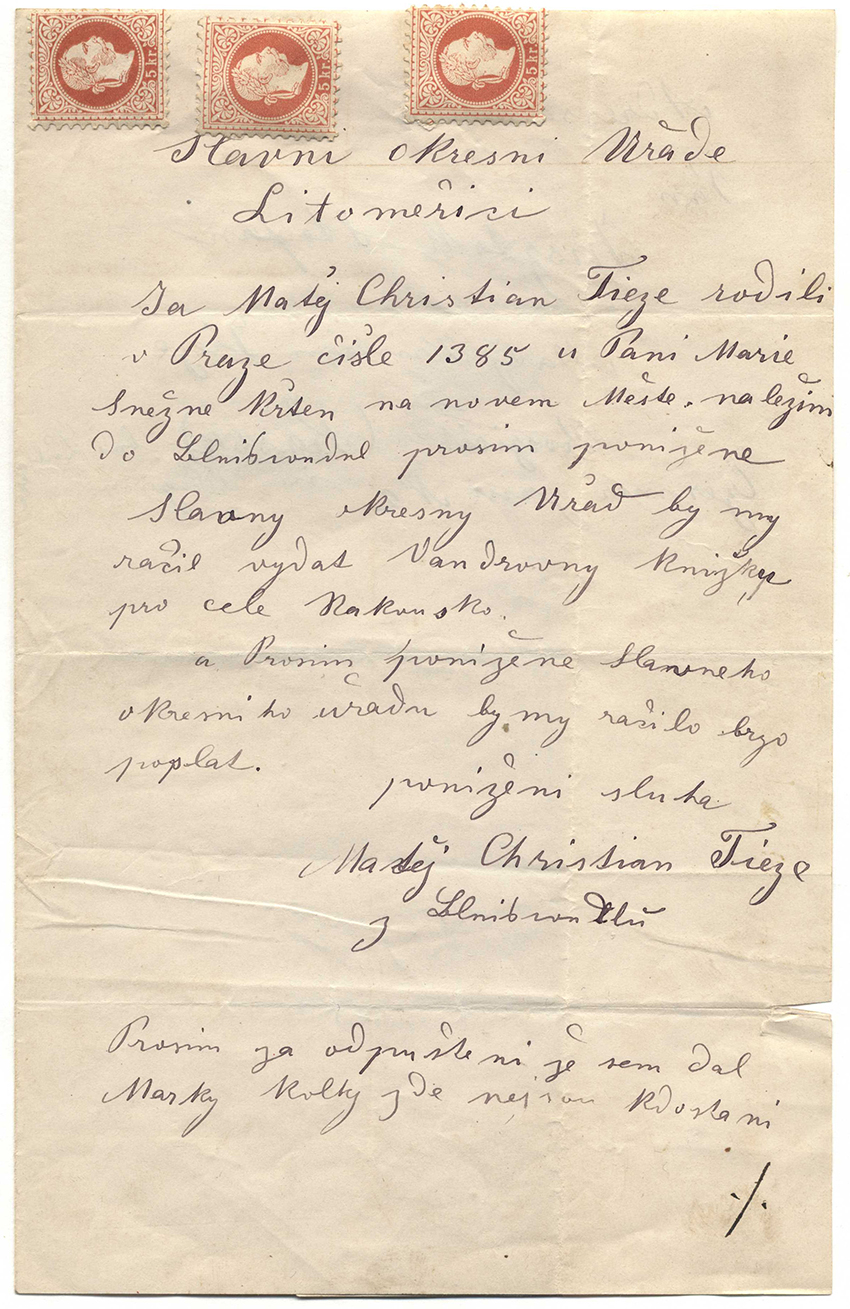 5 kr. 5 kr. 5 kr.
Slavni okresni Uřade
Litoměřici
Ja Matěj Christian Tieze rodili
v Praze čisle 1385 u Pani Marie
Sněžne Křten na novem Měste. naležim
do prosim ponižene
Slavny okresny Uřad by my
račil vydat Vandrovny Knižky
pro cele Rakousko.
a Prosim ponižene Slavneho
okresniho uřadu by my račilo brzo
poslat.
poniženi sluha
Matěj Christian Tieze
z
Prosim za odpušteni že sem dal
Marky Kolky zde nejsou Kdostani
./.